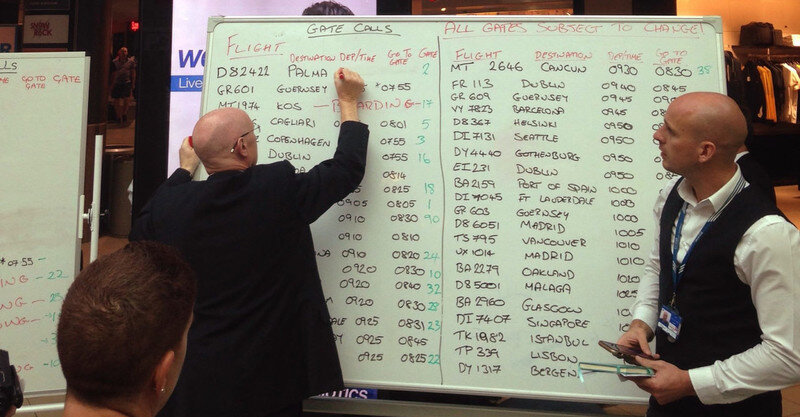 GATE CALLS
FLIGHT DESTINATION DEP/TIME GO TO GATE GATE
D82422 PALMA 2
GR601 GUERNSEY * 0755
MT1974 KOS — BOARDING - 17
CAGLIARI 0801 5
COPENHAGEN 0755 3
DUBLIN 0755 16
0814
0825 18
0905 0805 1
0910 0830 90
0910 0810
0910 0820 24
0920 0830 10
0920 0840 32
0920 0830 28
0925 0831 23
0925 0845
0925 0825 22
ALL GATES SUBJECT TO CHANGE!
FLIGHT DESTINATION DEP/TIME GO TO GATE
MT 2646 CANCUN 0930 0830 38
FR 113 DUBLIN 0940 0845
GR 609 GUERNSEY 0945
VY 7823 BARCELONA 0945
D8 367 HELSINKI 0950
DI 7131 SEATTLE 0950
DY 4440 GOTHENBURG 0950
EI 231 DUBLIN 0950
BA 2159 PORT OF SPAIN 1000
DI 7045 FT LAUDERDALE 1000
GR 603 GUERNSEY 1000
D8 6051 MADRID 1005
TS 795 VANCOUVER 1010
UX 1014 MADRID 1010
BA 2279 OAKLAND 1010
D8 5001 MALAGA 1010
BA 2960 GLASGOW 1025
DI 7407 SINGAPORE
TK 1982 ISTANBUL
TP 339 LISBON
DY 1317 BERGEN
GO TO GATE GATE
* 0755 -
22